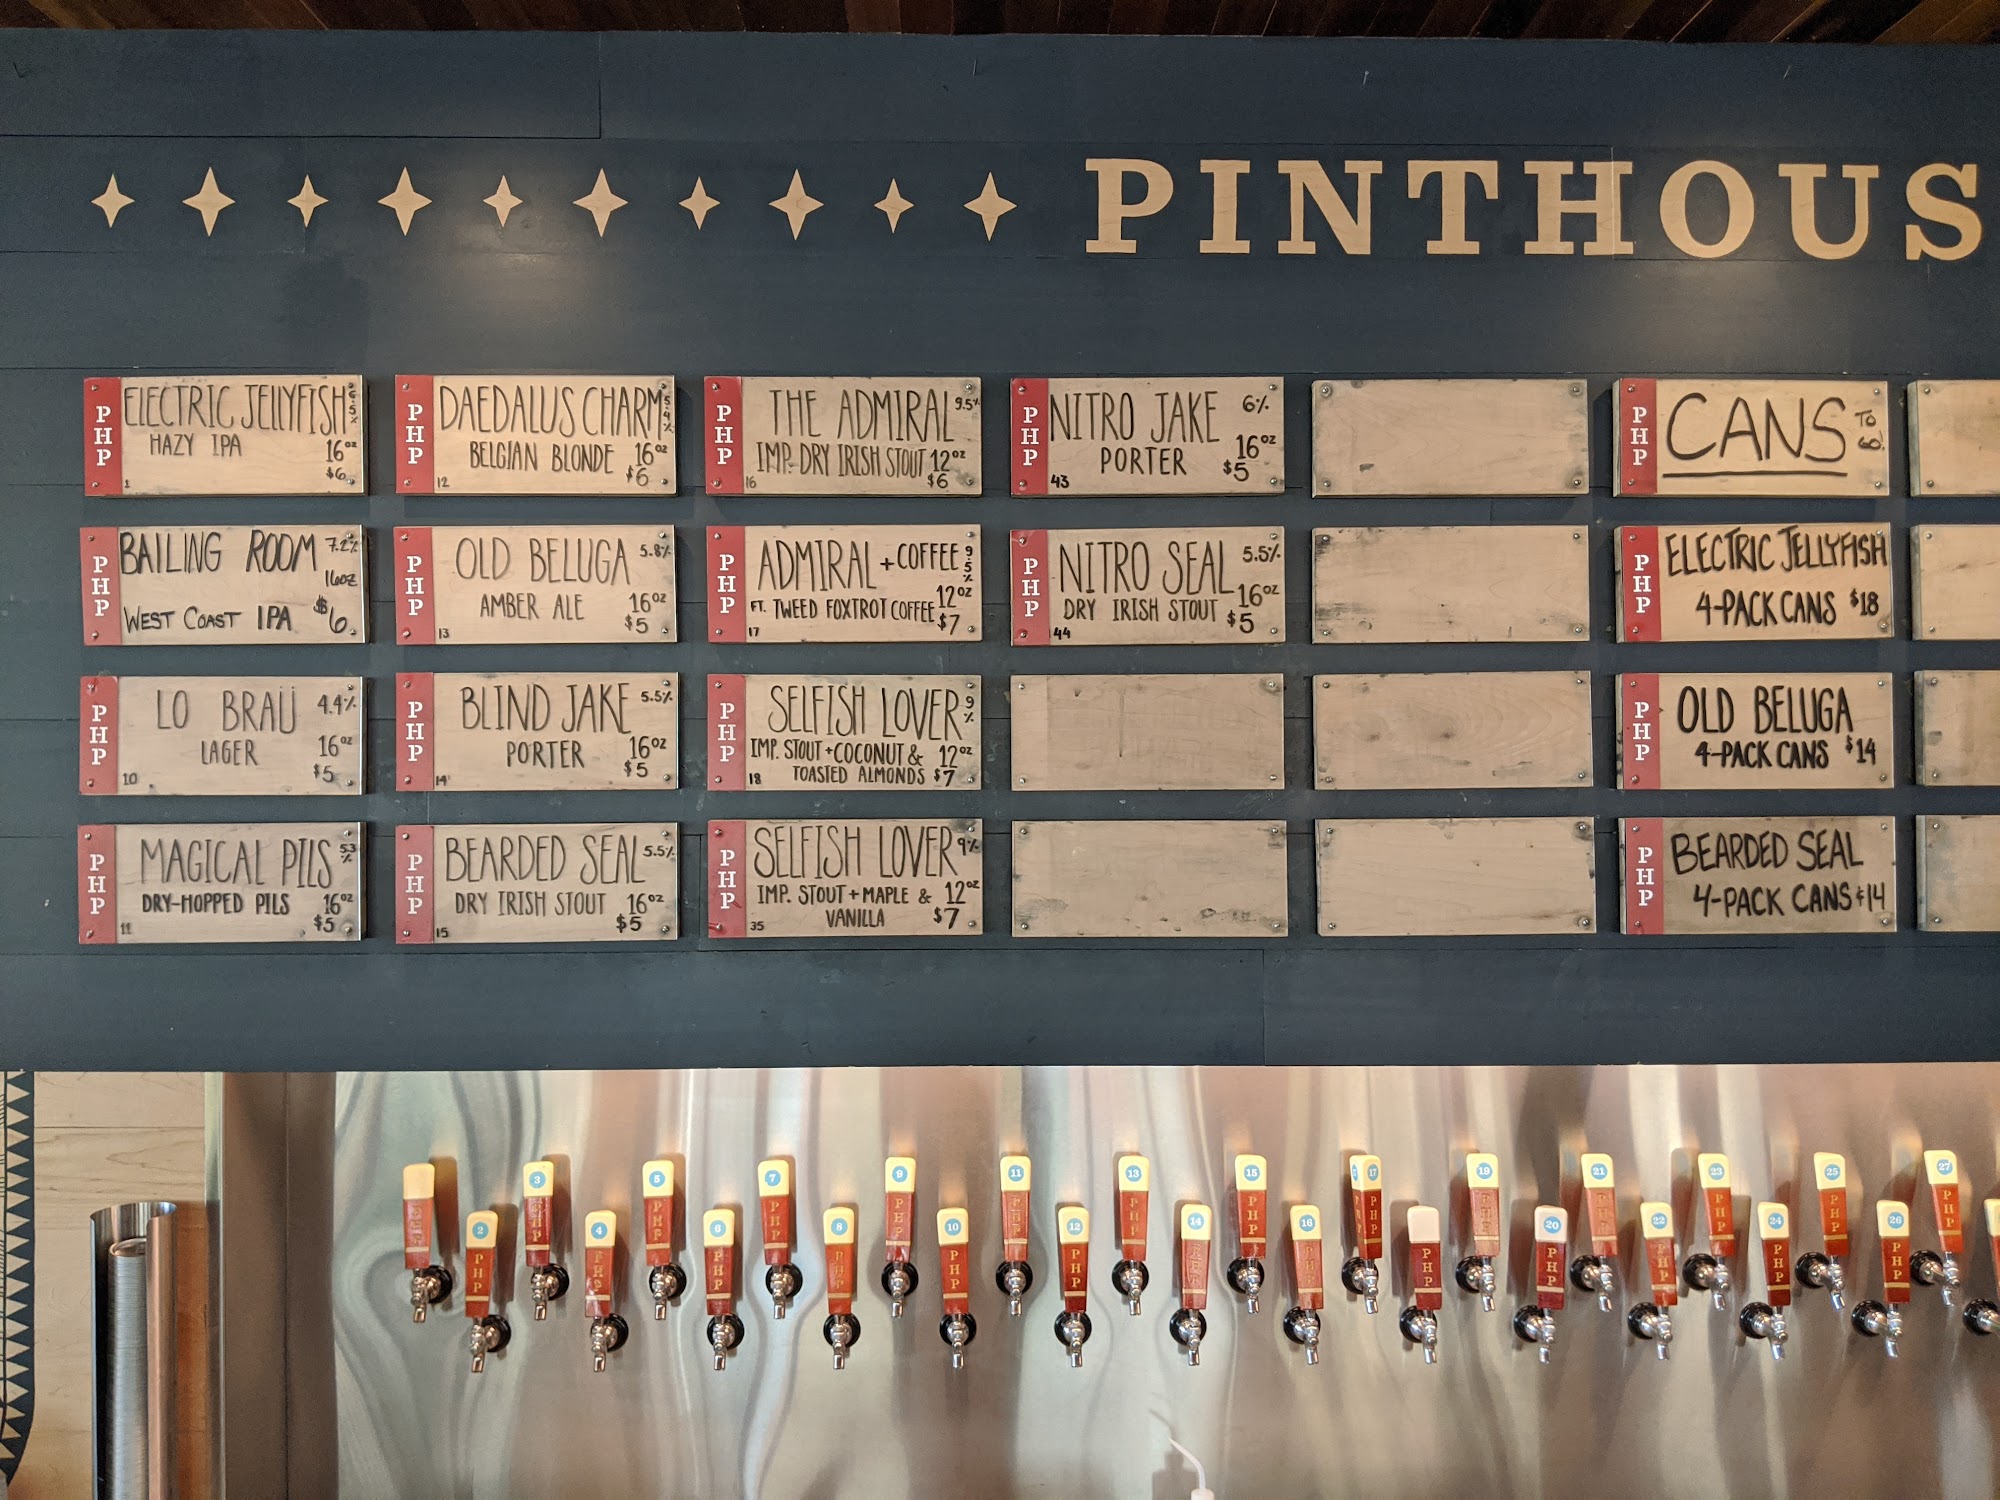 PINTHOUS
PHP
ELECTRIC JELLYFISH 6.5%
HAZY IPA 16oz
$6
1
PHP
DAEDALUS CHARM 5.4%
BELGIAN BLONDE 16oz
$6
12
PHP
THE ADMIRAL 9.5%
IMP. DRY IRISH STOUT 12oz
$6
16
PHP
NITRO JAKE 6%
PORTER 16oz
$5
43
PHP
CANS TO GO!
PHP
BAILING ROOM 7.2%
16oz
WEST COAST IPA $6
PHP
OLD BELUGA 5.8%
AMBER ALE 16oz
$5
13
PHP
ADMIRAL + COFFEE 9.5%
FT. TWEED FOXTROT COFFEE 12oz
$7
17
PHP
NITRO SEAL 5.5%
DRY IRISH STOUT 16oz
$5
44
PHP
ELECTRIC JELLYFISH
4-PACK CANS $18
PHP
LO BRAÜ 4.4%
LAGER 16oz
$5
10
PHP
BLIND JAKE 5.5%
PORTER 16oz
$5
14
PHP
SELFISH LOVER 9%
IMP. STOUT + COCONUT & 12oz
TOASTED ALMONDS $7
18
PHP
OLD BELUGA
4-PACK CANS $14
PHP
MAGICAL PILS 5.3%
DRY-HOPPED PILS 16oz
$5
11
PHP
BEARDED SEAL 5.5%
DRY IRISH STOUT 16oz
$5
15
PHP
SELFISH LOVER 9%
IMP. STOUT + MAPLE & 12oz
VANILLA $7
35
PHP
BEARDED SEAL
4-PACK CANS $14
3 5 7 9 11 13 15 17 19 21 23 25 27
2 4 6 8 10 12 14 16 20 22 24 26
PHP PHP PHP PHP PHP PHP PHP PHP PHP PHP PHP PHP PHP PHP
PHP PHP PHP PHP PHP PHP PHP PHP PHP PHP PHP PHP PHP